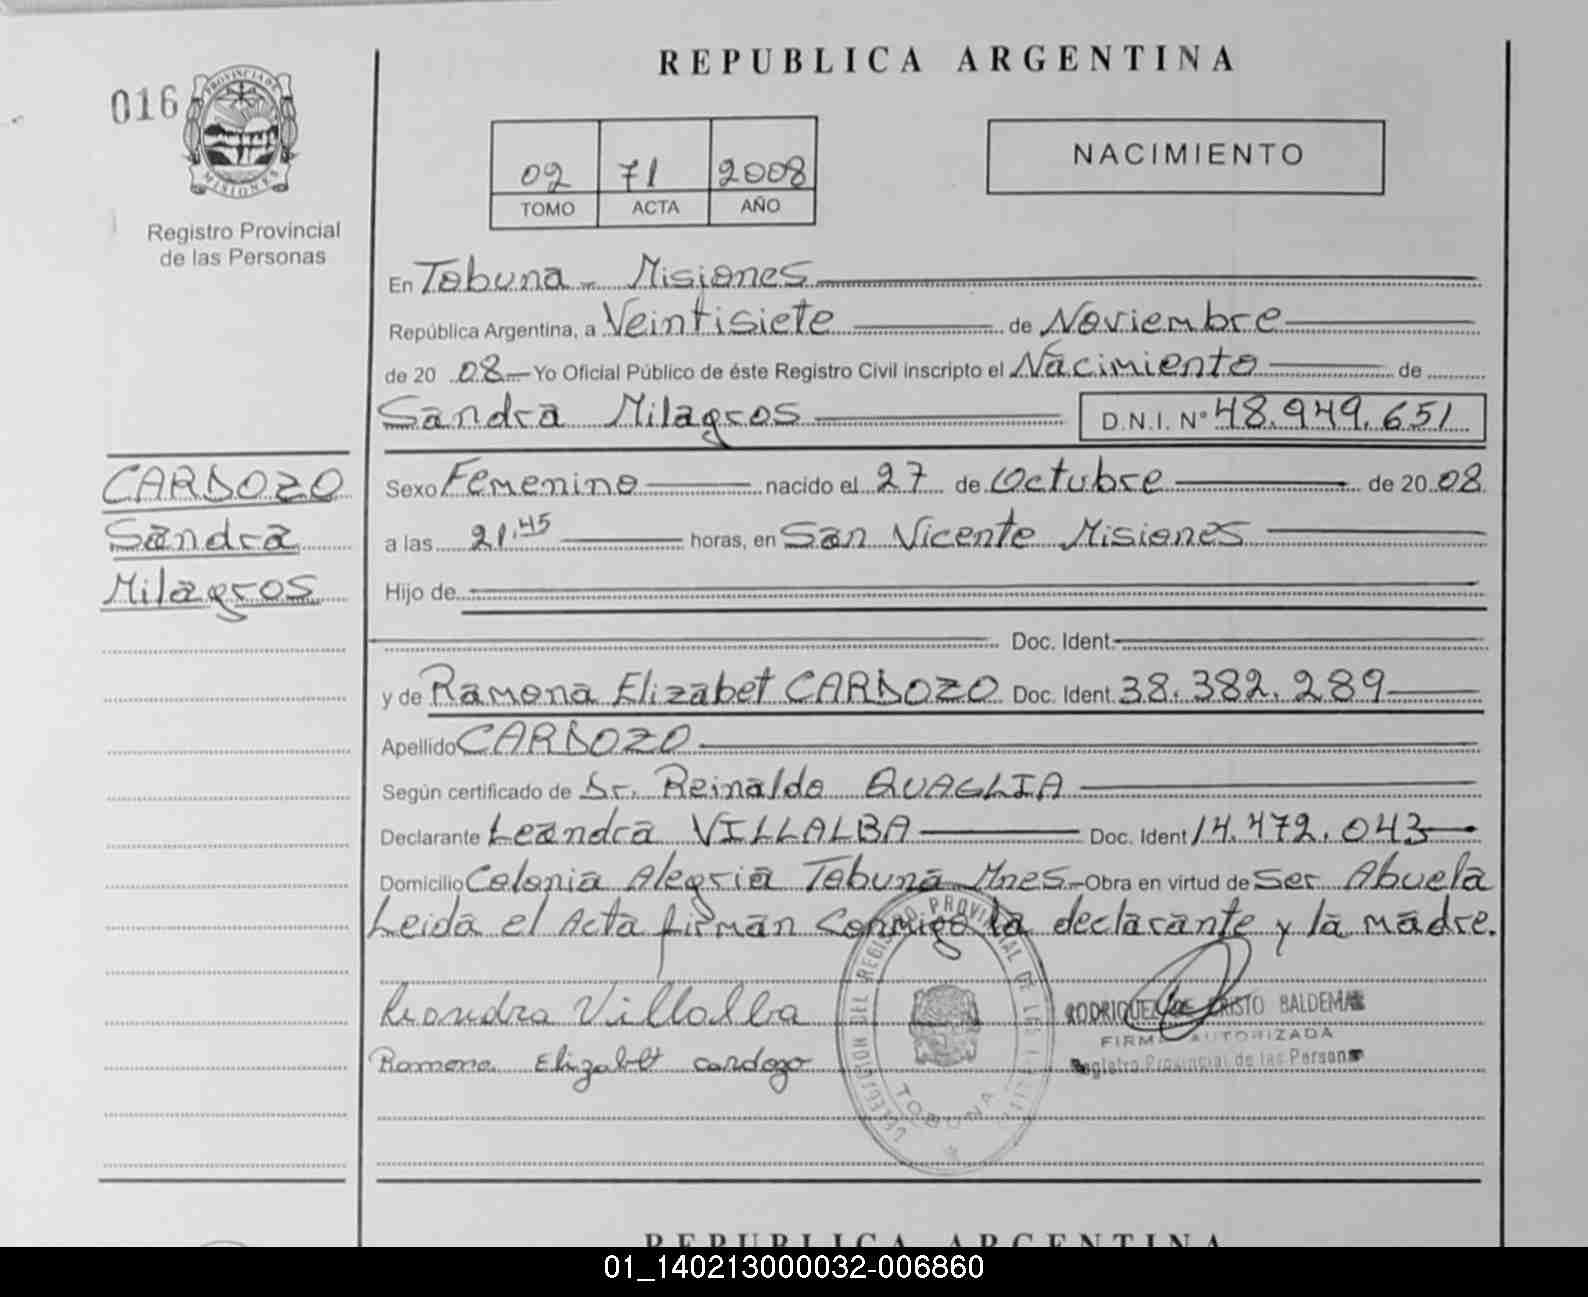 REPUBLICA ARGENTINA
016
PROVINCIA DE
MISIONES
Registro Provincial
de las Personas
02 71 2008
TOMO ACTA AÑO
NACIMIENTO
En Tobuna - Misiones
República Argentina, a Veintisiete de Noviembre
de 20 08 - Yo Oficial Público de éste Registro Civil inscripto el Nacimiento de
Sandra Milagros D.N.I. Nº 48.949.651
CARDOZO
Sandra
Milagros
Sexo Femenino nacido el 27 de Octubre de 20 08
a las 21,45 horas, en San Vicente Misiones
Hijo de
Doc. Ident.
y de Ramona Elizabet CARDOZO Doc. Ident. 38.382.289
Apellido CARDOZO
Según certificado de Dr. Reinaldo QUAGLIA
Declarante Leandra VILLALBA Doc. Ident 14.472.043
Domicilio Colonia Alegria Tobuna Mnes.- Obra en virtud de Ser Abuela
Leida el Acta firman Conmigo la declarante y la madre.
Leondra Villalba
Ramona Elizabet cardozo
DELEGACION DEL REGISTRO PROVINCIAL DE LAS
TOBUNA
RODRIGUEZ CRISTO BALDEMAR
FIRMA AUTORIZADA
Registro Provincial de las Personas
REPUBLICA ARGENTINA
01_140213000032-006860